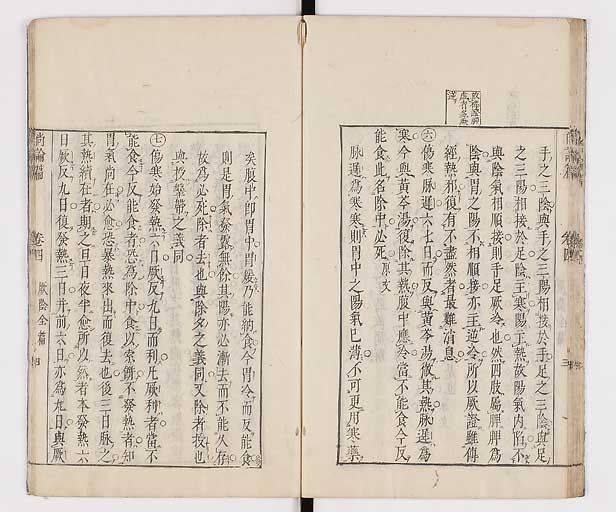 手之三陰與手之三陽相接於手足之三陰與足
之三陽相接於足陰主寒陽主熱故陽氣内陷不
與陰氣相順接則手足厥冷也然四肢屬脾脾爲
陰與胃之陽不相順接亦主逆冷所以厥證雖傳
經熱邪復有不盡然者最難消息
㊅傷寒脉遲六七日而反與黃芩湯徹其熱脉遲爲
寒今與黃芩湯復除其熱腹中應冷當不能食今反
能食此名除中必死 原文
脉遲爲寒寒則胃中之陽氣已薄不可更用寒藥
矣腹中卽胃中胃煖乃能納食今胃冷而反能食
則是胃氣發露無餘其陽亦必漸去而不能久存
故爲必死除者去也與除夕之義同又除者授也
與授盤帶之義同
㊆傷寒始發熱六日厥反九日而利凡厥利者當不
能食今反能食者恐爲除中食以索餅不發熱者知
胃氣尚在必愈恐暴熱來出而復去也後三日脉之
其熱續在者期之旦日夜半愈所以然者本發熱六
日厥反九日復發熱三日并前六日亦爲九日與厥
尚論篇
卷四
厥陰全篇